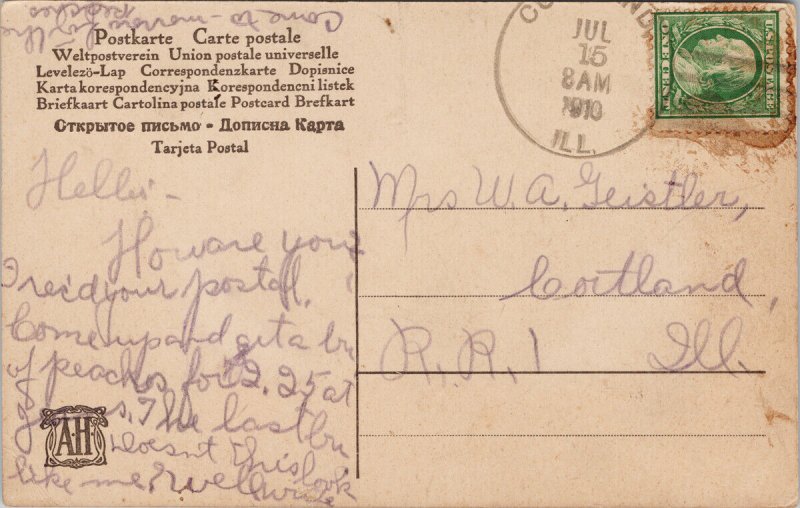 Come to-morrow for the
peaches
Postkarte Carte postale
Weltpostverein Union postale universelle
Levelező-Lap Correspondenzkarte Dopisnice
Karta korespondencyjna Korespondencni listek
Briefkaart Cartolina postale Postcard Brefkart
Открытое письмо - Дописна Карта
Tarjeta Postal
JUL
15
8 AM
1910
ILL.
U.S. POSTAGE
ONE CENT
Hello -
How are you?
I rec'd your postal.
Come up and get a bu
of peaches for $2.25 at
s. The last bu
Doesn't this look
like me? Well
A.H.
Mrs W.A. Geistler,
Cortland,
R.R. 1 Ill.